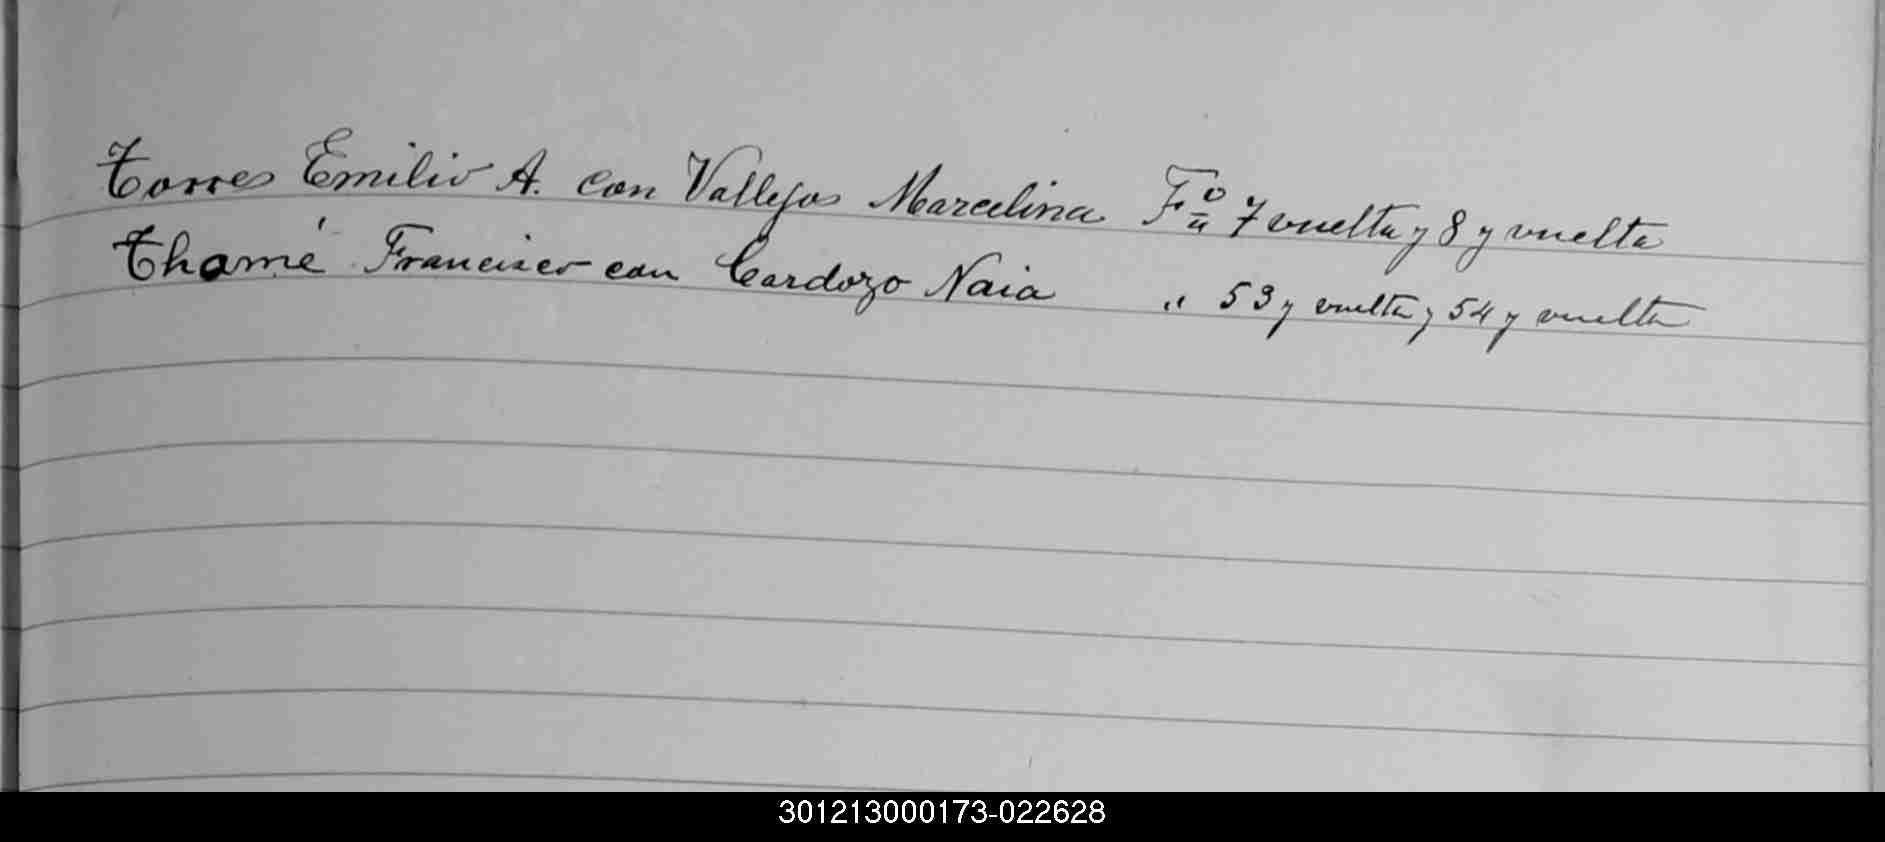 Torres Emilio A. con Vallejos Marcelina Fº 7 vuelta y 8 y vuelta
Thamé Francisco con Cardozo Naia " 53 y vuelta y 54 y vuelta
301213000173-022628